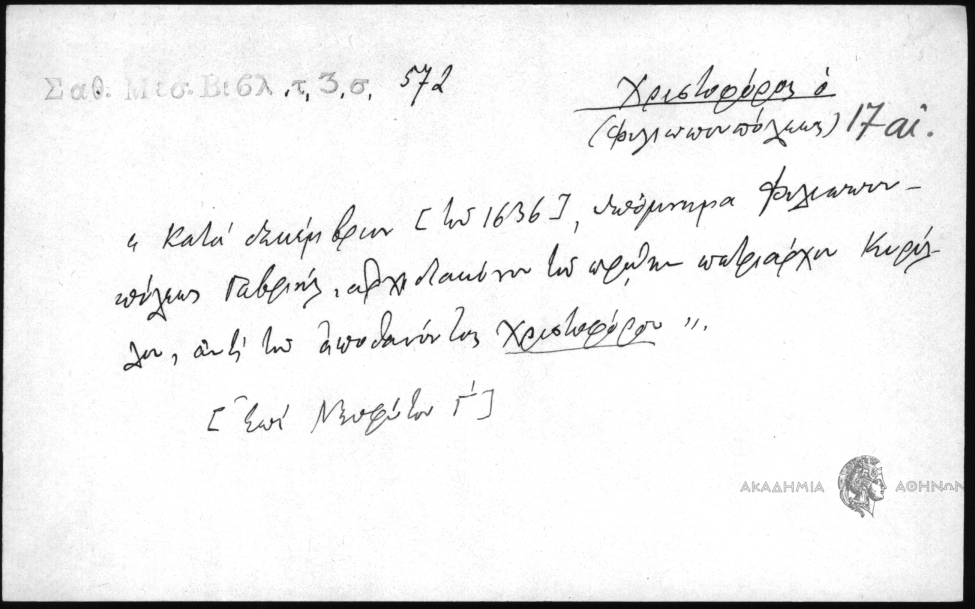 Σαθ. Μεσ. Βιβλ. τ. 3, σ. 572
Χριστοφόρος ὁ
(Φιλιππουπόλεως) 17 αἰ.
« Κατά Δεκέμβριον [τοῦ 1636], ὑπόμνημα Φιλιππου-
πόλεως Γαβριήλ, ἀρχιδιακόνου τοῦ πρῴην πατριάρχου Κυρίλ-
λου, ἀντί τοῦ ἀποθανόντος Χριστοφόρου ».
[Ἐπί Νεοφύτου Γ']
ΑΚΑΔΗΜΙΑ ΑΘΗΝΩΝ